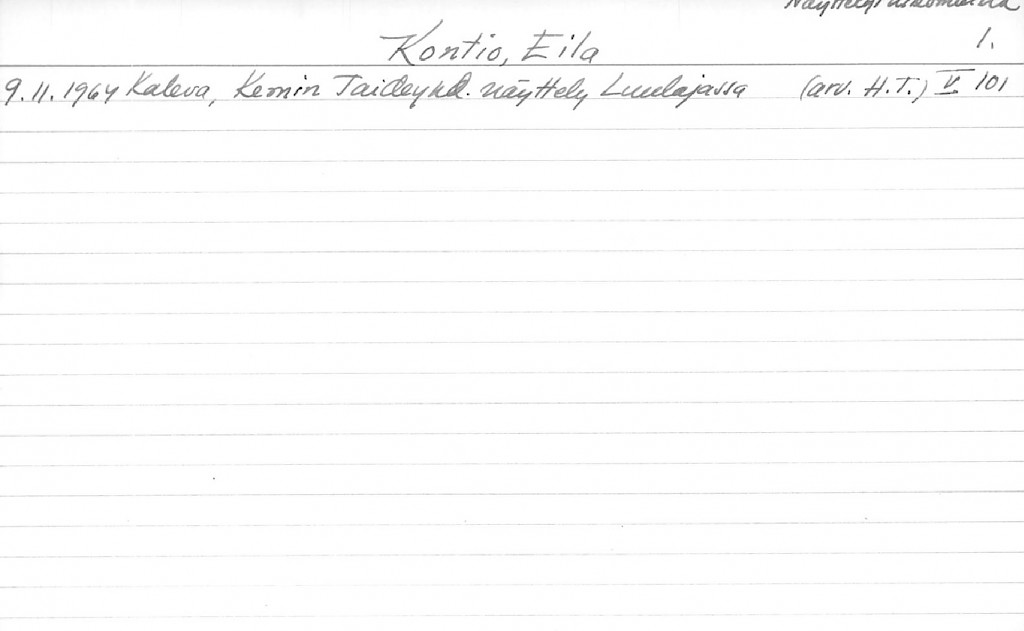 Kontio, Eila
1.
9.11.1964 Kaleva, Kemin Taideyhd. näyttely Luulajassa (arv. H.T.) V 101